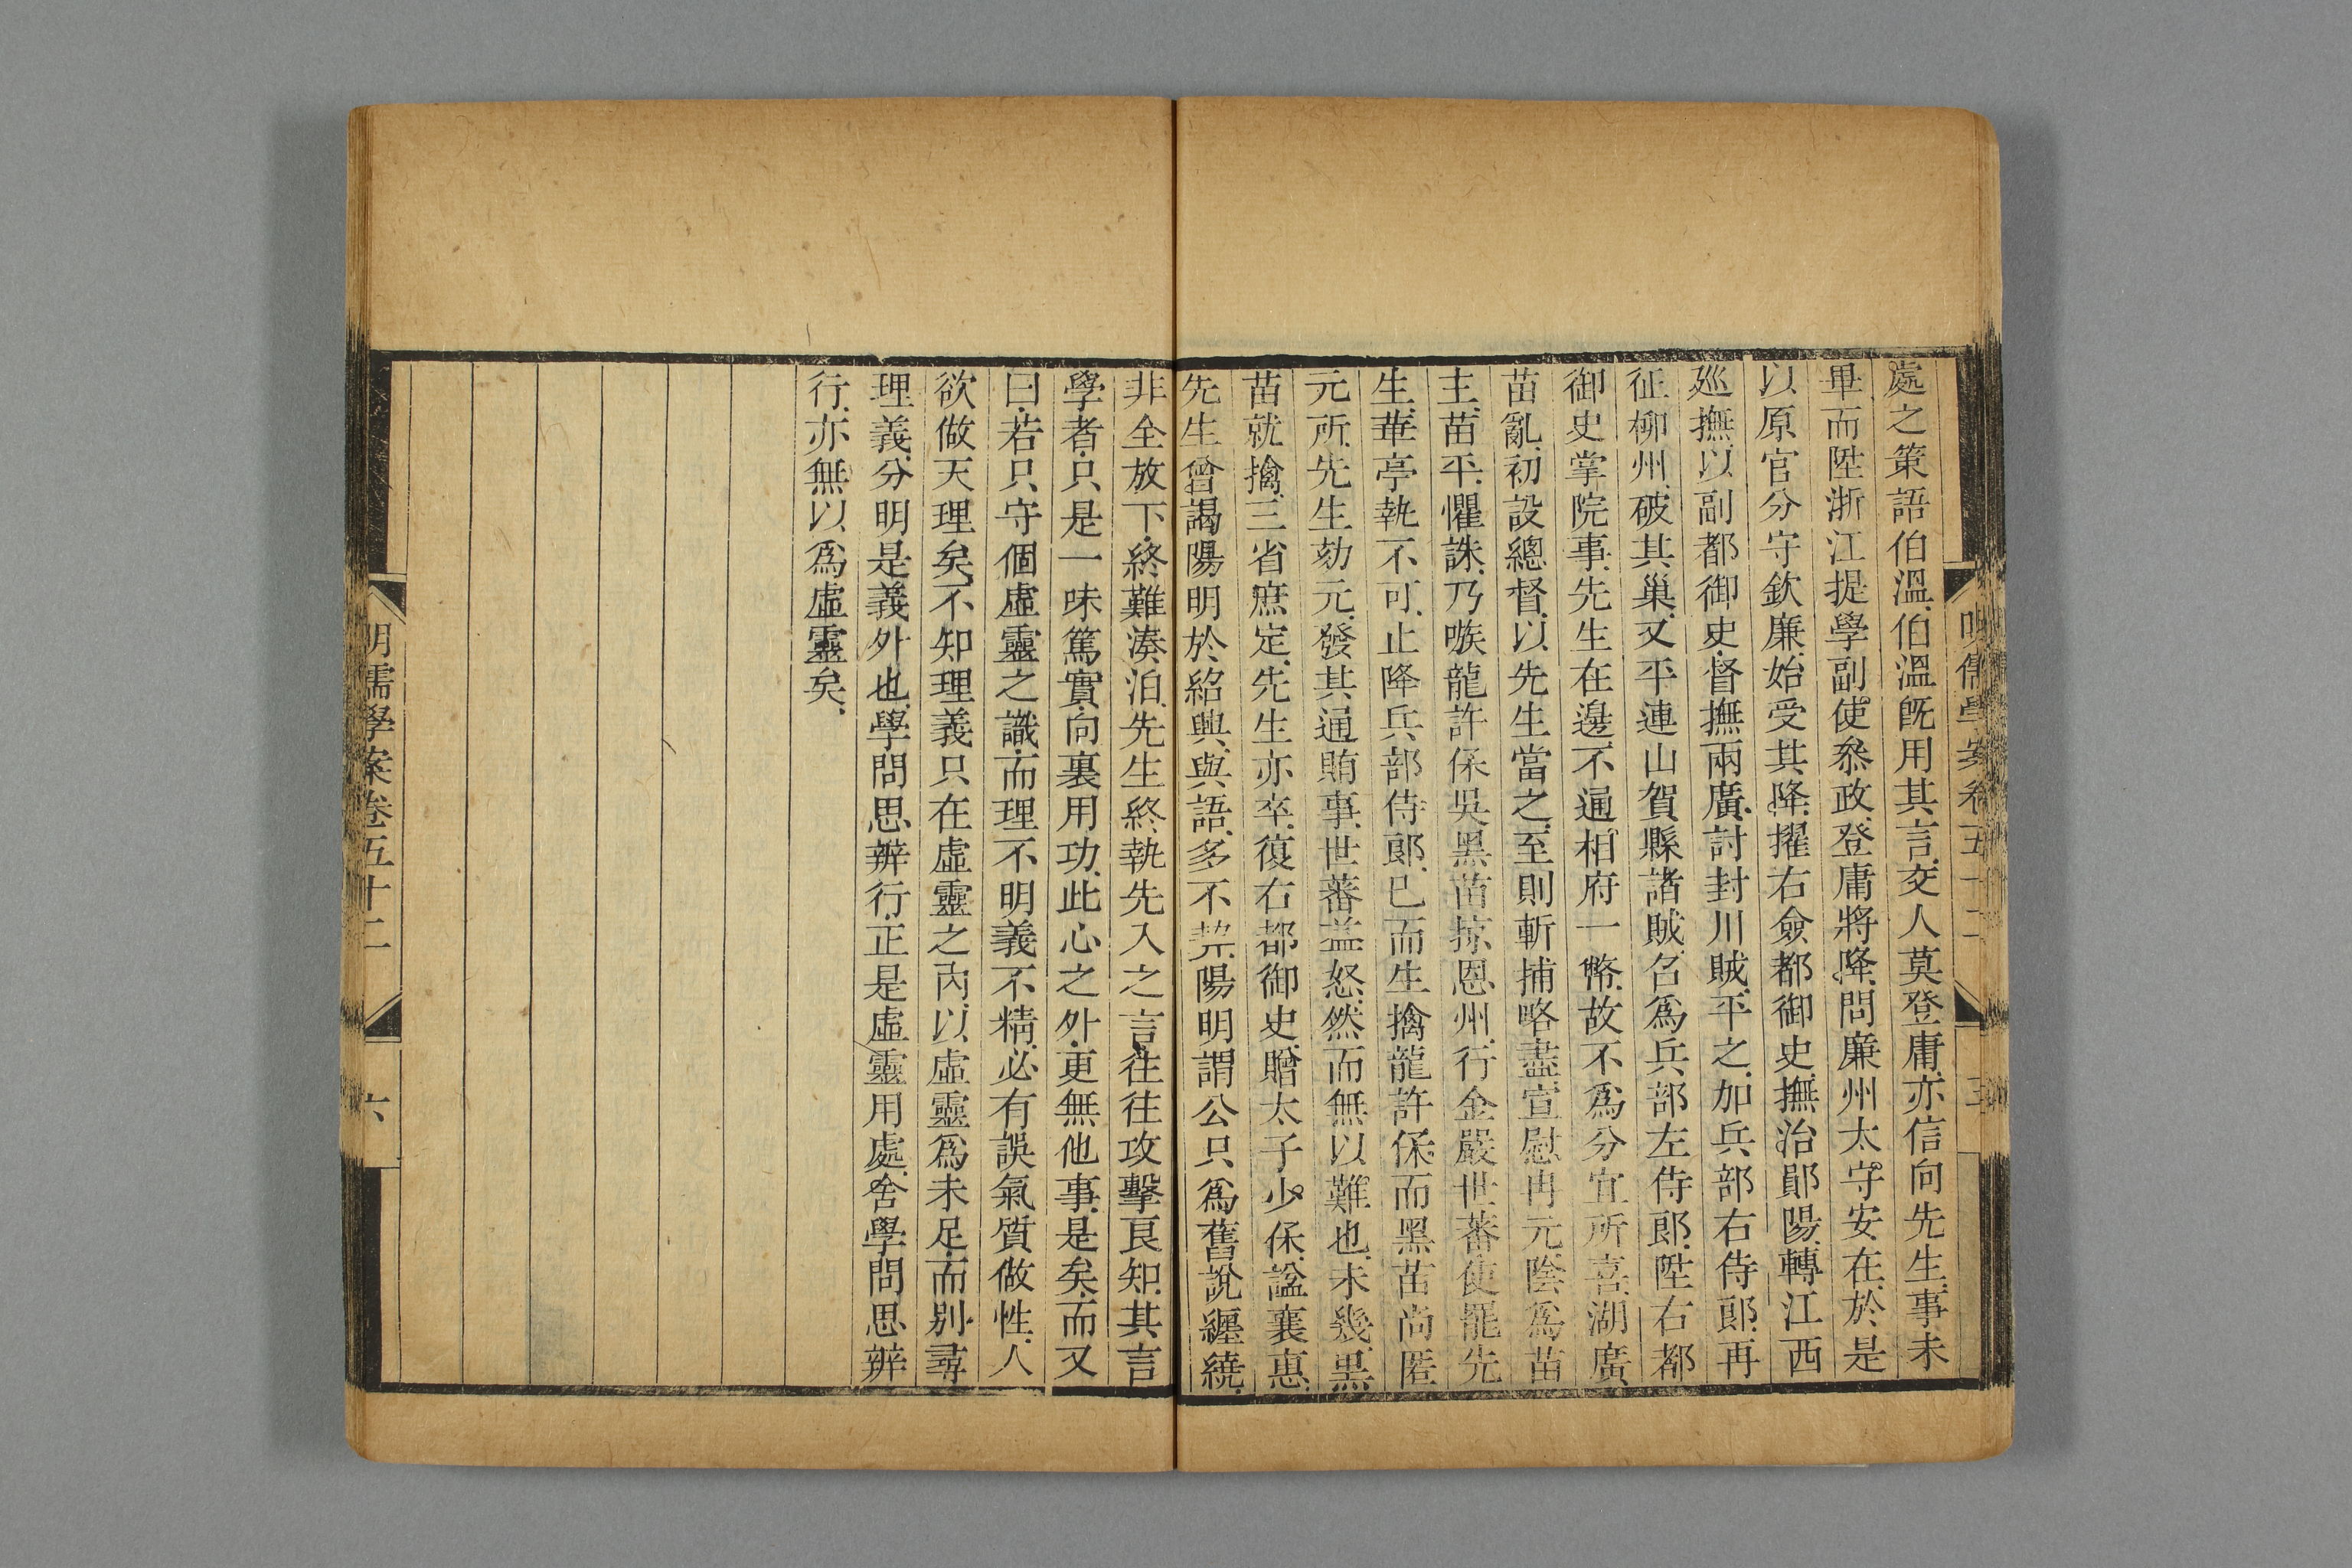 處之策語伯溫伯溫旣用其言交人莫登庸亦信向先生事未
畢而陞浙江提學副使叅政登庸將降問廉州太守安在於是
以原官分守欽廉始受其降擢右僉都御史撫治鄖陽轉江西
廵撫以副都御史督撫兩廣討封川賊平之加兵部右侍郞再
征柳州破其巢又平連山賀縣諸賊召爲兵部左侍郞陞右都
御史掌院事先生在邊不通相府一幣故不爲分宜所喜湖廣
苗亂初設總督以先生當之至則斬捕略盡宣慰冉元陰爲苗
主苗平懼誅乃嗾龍許保吳黑苗掠恩州行金嚴世蕃使罷先
生華亭執不可止降兵部侍郞已而生擒龍許保而黑苗尚匿
元所先生劾元發其通賄事世蕃益怒然而無以難也未幾黑
苗就擒三省底定先生亦卒復右都御史贈太子少保諡襄惠
先生曾謁陽明於紹興與語多不契陽明謂公只爲舊說纏繞
非全放下終難湊泊先生終執先入之言往往攻擊良知其言
學者只是一味篤實向裏用功此心之外更無他事是矣而又
曰若只守個虛靈之識而理不明義不精必有誤氣質做性人
欲做天理矣不知理義只在虛靈之內以虛靈爲未足而別尋
理義分明是義外也學問思辨行正是虛靈用處舍學問思辨
行亦無以爲虛靈矣
明儒學案卷五十二
六